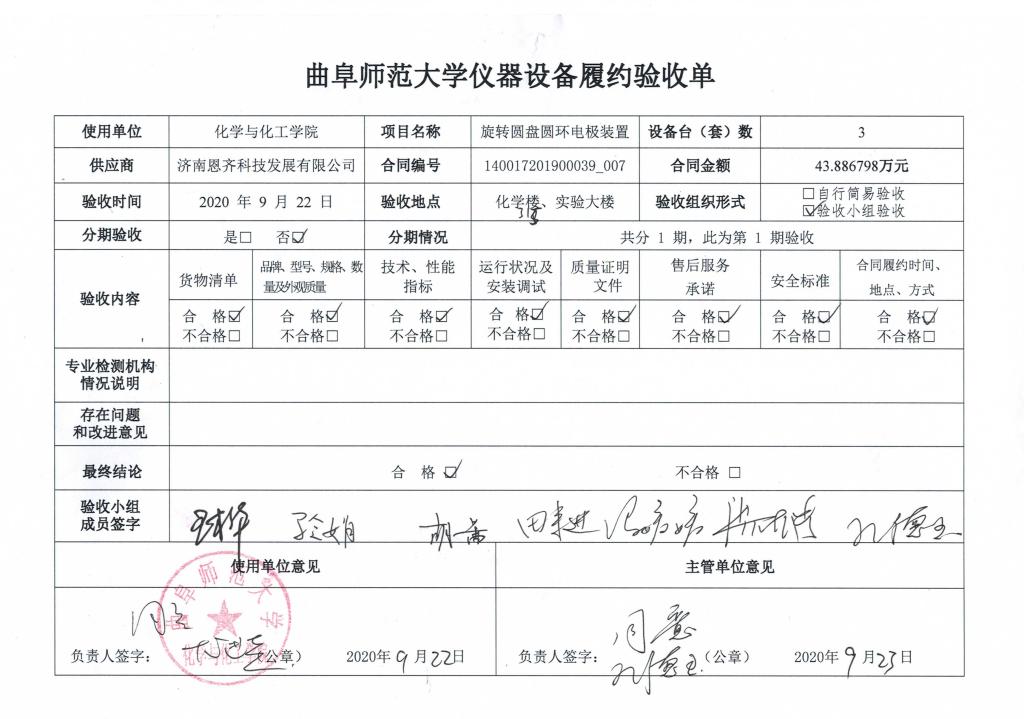 曲阜师范大学仪器设备履约验收单
使用单位 化学与化工学院 项目名称 旋转圆盘圆环电极装置 设备台（套）数 3
供应商 济南恩齐科技发展有限公司 合同编号 140017201900039_007 合同金额 43.886798万元
验收时间 2020 年 9 月 22 日 验收地点 化学楼、实验大楼 验收组织形式 □自行简易验收
☑验收小组验收
分期验收 是□ 否☑ 分期情况 共分 1 期，此为第 1 期验收
验收内容
货物清单 品牌、型号、规格、数 技术、性能 运行状况及 质量证明 售后服务 安全标准 合同履约时间、
量及外观质量 指标 安装调试 文件 承诺 地点、方式
合 格☑ 合 格☑ 合 格☑ 合 格☑ 合 格☑ 合 格☑ 合 格☑ 合 格☑
不合格□ 不合格□ 不合格□ 不合格□ 不合格□ 不合格□ 不合格□ 不合格□
专业检测机构
情况说明
存在问题
和改进意见
最终结论 合 格 ☑ 不合格 □
验收小组
成员签字
使用单位意见 主管单位意见
曲阜师范大学
化学与化工学院
负责人签字： （公章） 2020年 9 月 22 日 负责人签字： （公章） 2020年 9 月 23 日